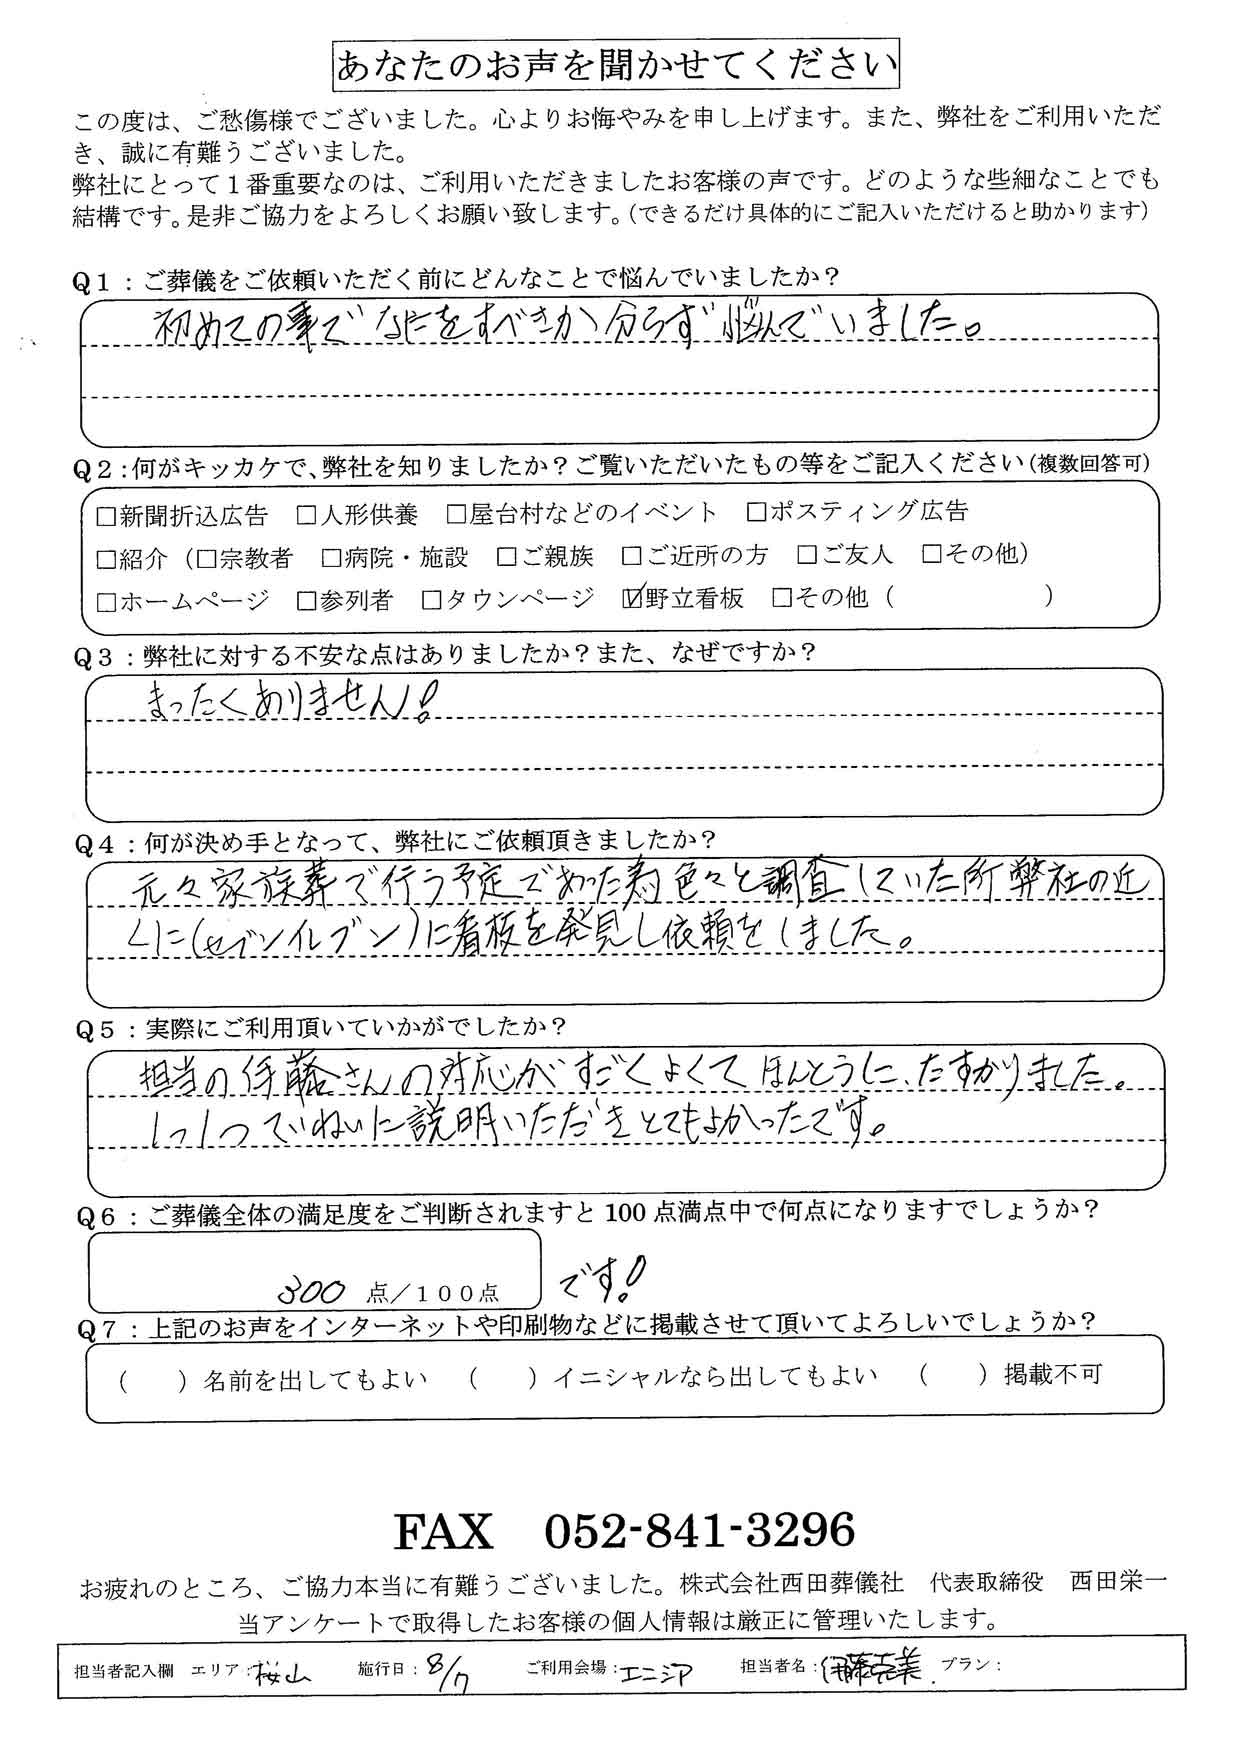 あなたのお声を聞かせてください
この度は、ご愁傷様でございました。心よりお悔やみを申し上げます。また、弊社をご利用いただ
き、誠に有難うございました。
弊社にとって１番重要なのは、ご利用いただきましたお客様の声です。どのような些細なことでも
結構です。是非ご協力をよろしくお願い致します。（できるだけ具体的にご記入いただけると助かります）
Q１：ご葬儀をご依頼いただく前にどんなことで悩んでいましたか？
初めての事でなにをすべきか分らず悩んでいました。
Q２：何がキッカケで、弊社を知りましたか？ご覧いただいたもの等をご記入ください（複数回答可）
□新聞折込広告　□人形供養　□屋台村などのイベント　□ポスティング広告
□紹介（□宗教者　□病院・施設　□ご親族　□ご近所の方　□ご友人　□その他）
□ホームページ　□参列者　□タウンページ　☑野立看板　□その他（　　　　　　）
Q３：弊社に対する不安な点はありましたか？また、なぜですか？
まったくありません！
Q４：何が決め手となって、弊社にご依頼頂きましたか？
元々家族葬で行う予定であった為色々と調査していた所弊社の近
くに（セブンイレブン）に看板を発見し依頼をしました。
Q５：実際にご利用頂いていかがでしたか？
担当の伊藤さんの対応がすごくよくてほんとうに、たすかりました。
1つ1つていねいに説明いただきとてもよかったです。
Q６：ご葬儀全体の満足度をご判断されますと 100 点満点中で何点になりますでしょうか？
300 点／１００点 です！
Q７：上記のお声をインターネットや印刷物などに掲載させて頂いてよろしいでしょうか？
（　　）名前を出してもよい　（　　）イニシャルなら出してもよい　（　　）掲載不可
FAX　052-841-3296
お疲れのところ、ご協力本当に有難うございました。株式会社西田葬儀社　代表取締役　西田栄一
当アンケートで取得したお客様の個人情報は厳正に管理いたします。
担当者記入欄　エリア：桜山　施行日：8/7　ご利用会場：エニシア　担当者名：伊藤　美　プラン：